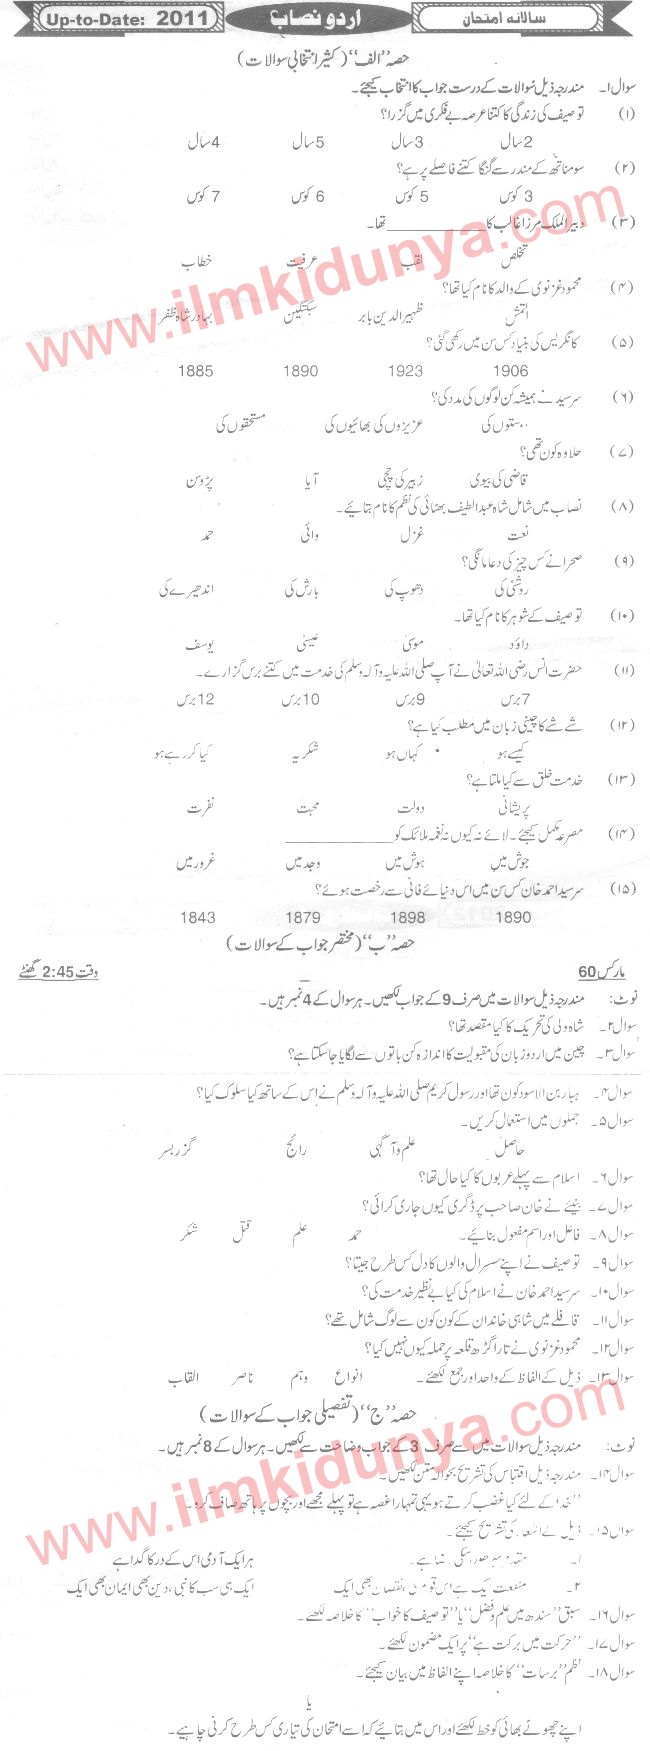 سالانہ امتحان
اردو نصاب
Up-to-Date: 2011
حصہ "الف" (کثیر انتخابی سوالات)
سوال ۱۔ مندرجہ ذیل سوالات کے درست جواب کا انتخاب کیجئے۔
(۱) توصیف کی زندگی کا کتنا عرصہ بے فکری میں گزرا؟
2 سال 3 سال 5 سال 4 سال
(۲) سومناتھ کے مندر سے گنگا کتنے فاصلے پر ہے؟
3 کوس 5 کوس 6 کوس 7 کوس
(۳) دبیر الملک مرزا غالب کا ____________ تھا۔
تخلص لقب عرفیت خطاب
(۴) محمود غزنوی کے والد کا نام کیا تھا؟
التمش ظہیر الدین بابر سبکتگین بہادر شاہ ظفر
(۵) کانگریس کی بنیاد کس سن میں رکھی گئی؟
1906 1923 1890 1885
(۶) سرسید نے ہمیشہ کن لوگوں کی مدد کی؟
دوستوں کی عزیزوں کی بھائیوں کی مستحقوں کی
(۷) حلاوہ کون تھی؟
قاضی کی بیوی زبیر کی چچی آیا پڑوسن
(۸) نصاب میں شامل شاہ عبداللطیف بھٹائی کی نظم کا نام بتائیے۔
نعت غزل وائی حمد
(۹) صحرا نے کس چیز کی دعا مانگی؟
روشنی کی دھوپ کی بارش کی اندھیرے کی
(۱۰) توصیف کے شوہر کا نام کیا تھا۔
داؤد موسیٰ عیسیٰ یوسف
(۱۱) حضرت انس رضی اللہ تعالیٰ نے آپ صلی اللہ علیہ وآلہ وسلم کی خدمت میں کتنے برس گزارے۔
7 برس 9 برس 10 برس 12 برس
(۱۲) شے شے کا چینی زبان میں مطلب کیا ہے؟
کیسے ہو کہاں ہو شکریہ کیا کر رہے ہو
(۱۳) خدمت خلق سے کیا ملتا ہے؟
پریشانی دولت محبت نفرت
(۱۴) مصرعہ مکمل کیجئے۔ لائے نہ کیوں نہ نغمہ ملائک کو ____________
جوش میں ہوش میں وجد میں غرور میں
(۱۵) سرسید احمد خان کس سن میں اس دنیائے فانی سے رخصت ہوئے؟
1890 1898 1879 1843
حصہ "ب" (مختصر جواب کے سوالات)
مارکس 60 وقت 2:45 گھنٹے
نوٹ: مندرجہ ذیل سوالات میں صرف 9 کے جواب لکھیں۔ ہر سوال کے 4 نمبر ہیں۔
سوال ۲۔ شاہ ولی کی تحریک کا کیا مقصد تھا؟
سوال ۳۔ چین میں اردو زبان کی مقبولیت کا اندازہ کن باتوں سے لگایا جا سکتا ہے؟
سوال ۴۔ ہبار بن الاسود کون تھا اور رسول کریم صلی اللہ علیہ وآلہ وسلم نے اس کے ساتھ کیا سلوک کیا؟
سوال ۵۔ جملوں میں استعمال کریں۔
حاصل علم و آگہی رائج گزر بسر
سوال ۶۔ اسلام سے پہلے عربوں کا کیا حال تھا؟
سوال ۷۔ بنیئے نے خان صاحب پر ڈگری کیوں جاری کرائی؟
سوال ۸۔ فاعل اور اسم مفعول بنائیے۔ حمد علم قتل شکر
سوال ۹۔ توصیف نے اپنے سسرال والوں کا دل کس طرح جیتا؟
سوال ۱۰۔ سرسید احمد خان نے اسلام کی کیا بے نظیر خدمت کی؟
سوال ۱۱۔ قافلے میں شاہی خاندان کے کون کون سے لوگ شامل تھے؟
سوال ۱۲۔ محمود غزنوی نے تارا گڑھ قلعہ پر حملہ کیوں نہیں کیا؟
سوال ۱۳۔ ذیل کے الفاظ کے واحد اور جمع لکھئے۔ انواع وہم ناصر القاب
حصہ "ج" (تفصیلی جواب کے سوالات)
نوٹ: مندرجہ ذیل سوالات میں سے صرف 3 کے جواب وضاحت سے لکھیں۔ ہر سوال کے 8 نمبر ہیں۔
سوال ۱۴۔ مندرجہ ذیل اقتباس کی تشریح بحوالہ متن لکھیں۔
"خدا کے لئے کیا غضب کرتے ہو یہی تمہارا غصہ ہے تو پہلے مجھے اور بچوں پر ہاتھ صاف کرو۔
سوال ۱۵۔ ذیل کے اشعار کی تشریح کیجئے۔
۱۔ ہر ایک آدمی اس کے در کا گدا ہے
۲۔ منفعت ایک ہے اس قوم کی، نقصان بھی ایک ایک ہی سب کا نبی، دین بھی ایمان بھی ایک
سوال ۱۶۔ سبق "سندھ میں علم و فضل" یا "توصیف کا خواب" کا خلاصہ لکھئے۔
سوال ۱۷۔ "حرکت میں برکت ہے" پر ایک مضمون لکھئے۔
سوال ۱۸۔ نظم "برسات" کا خلاصہ اپنے الفاظ میں بیان کیجئے۔
یا
اپنے چھوٹے بھائی کو خط لکھئے اور اس میں بتائیے کہ اسے امتحان کی تیاری کس طرح کرنی چاہیے۔
www.ilmkidunya.com
www.ilmkidunya.com